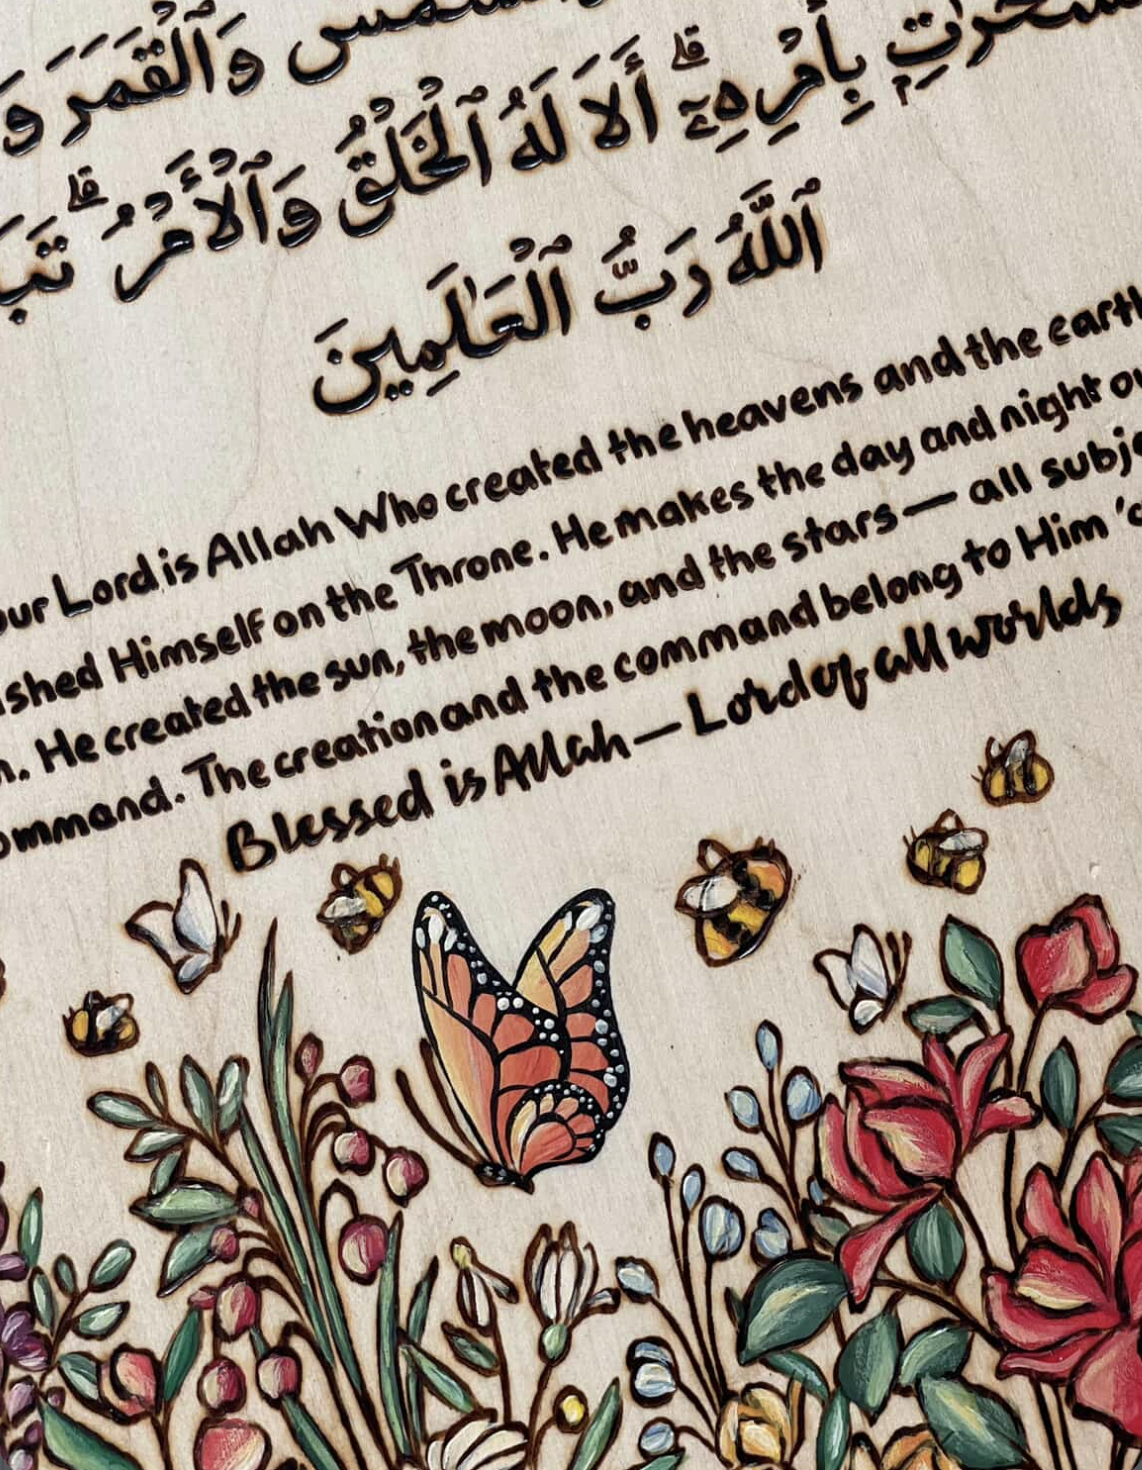 وَٱلْقَمَرَ
بِأَمْرِهِۦٓ ۗ أَلَا لَهُ ٱلْخَلْقُ وَٱلْأَمْرُ ۗ
ٱللَّهُ رَبُّ ٱلْعَـٰلَمِينَ
Lord is Allah Who created the heavens and the
Himself on the Throne. He makes the day and night
He created the sun, the moon, and the stars — all
The creation and the command belong to Him
Blessed is Allah — Lord of all worlds